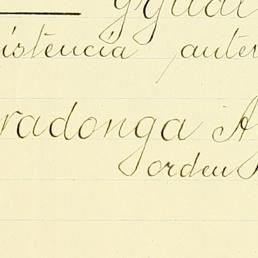 istencia anter
radonga A
orden